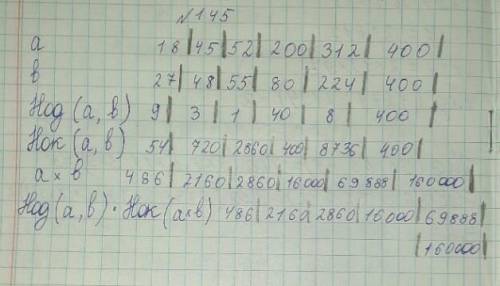 №145
а 18|45|52|200|312|400|
в 27|48|55|80|224|400|
Нод (а, в) 9|3|1|40|8|400|
Нок (а, в) 54|720|2860|400|8736|400|
а × в 486|2160|2860|16000|69888|160000|
Нод (а, в) · Нок (а×в) 486|2160|2860|16000|69888|
|160000|